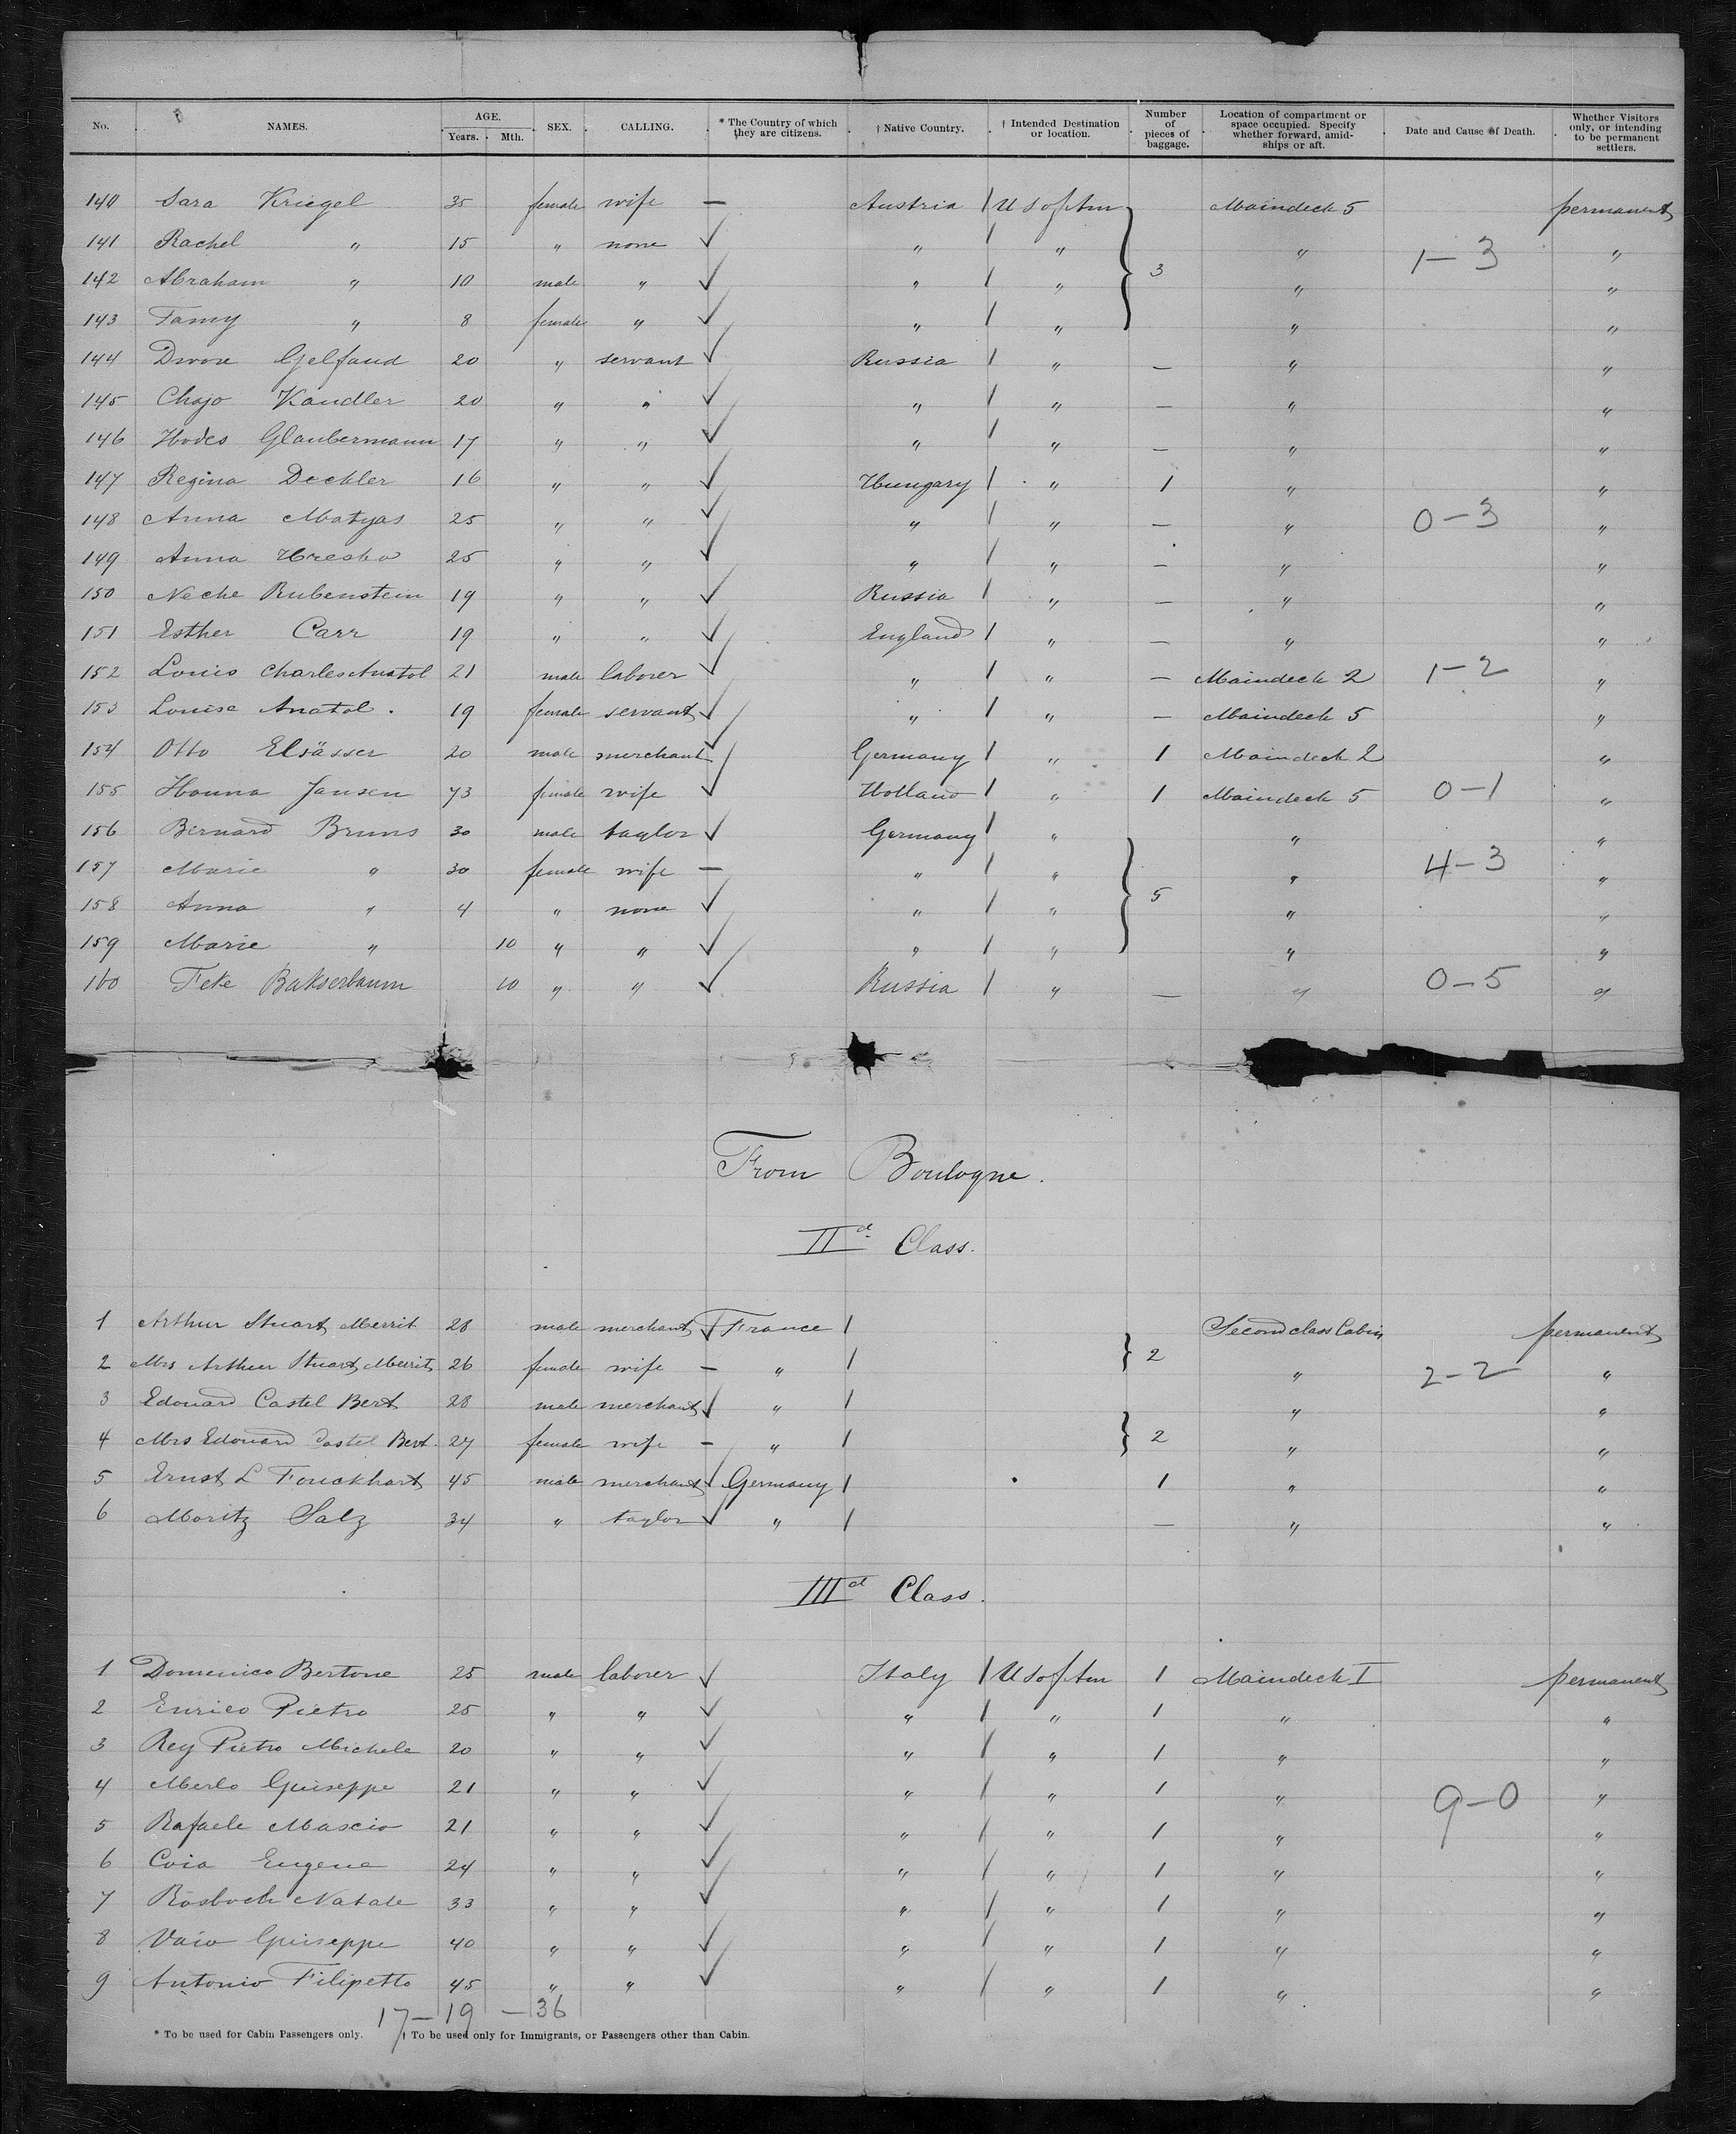 No. NAMES. AGE. Years. Mth. SEX. CALLING. * The Country of which they are citizens. † Native Country. † Intended Destination or location. Number of pieces of baggage. Location of compartment or space occupied. Specify whether forward, amidships or aft. Date and Cause of Death. Whether Visitors only, or intending to be permanent settlers.
140 Sara Kriegel 35 female wife — Austria / U S of Am Maindeck 5 permanent
141 Rachel " 15 " none ✓ " / " " 1—3 "
142 Abraham " 10 male " ✓ " / " 3 " "
143 Famy " 8 female " ✓ " / " " "
144 Dwore Gelfand 20 " servant ✓ Russia / " — " "
145 Chajo Kandler 20 " " ✓ " / " — " "
146 Hodes Glaubermann 17 " " ✓ " / " — " "
147 Regina Deckler 16 " " ✓ Hungary / " 1 " "
148 Anna Matyas 25 " " ✓ " / " — " 0—3 "
149 Anna Hresko 25 " " ✓ " / " — " "
150 Neche Rubenstein 19 " " ✓ Russia / " — " "
151 Esther Carr 19 " " ✓ England / " — " "
152 Louis Charles Anatol 21 male laborer ✓ " / " — Maindeck 2 1—2 "
153 Louise Anatol . 19 female servant ✓ " / " — Maindeck 5 "
154 Otto Elsässer 20 male merchant ✓ Germany / " 1 Maindeck 2 "
155 Hanna Jansen 73 female wife ✓ Holland / " 1 Maindeck 5 0—1 "
156 Bernard Bruns 30 male taylor ✓ Germany / " " "
157 Marie " 30 female wife — " / " " 4—3 "
158 Anna " 4 " none ✓ " / " 5 " "
159 Marie " 10 " " ✓ " / " " "
160 Feke Bakserbaum 10 " " ✓ Russia / " — " 0—5 "
From Boulogne.
IId Class.
1 Arthur Stuart Merrit 28 male merchant ✓ France / Second class Cabin permanent
2 Mrs Arthur Stuart Merrit 26 female wife — " / 2 " 2—2 "
3 Edouard Castel Bert 28 male merchant ✓ " / " "
4 Mrs Edouard Castel Bert 27 female wife — " / 2 " "
5 Ernst L Fouckhart 45 male merchant ✓ Germany / 1 " "
6 Moritz Salz 34 " taylor ✓ " / — " "
IIId Class.
1 Domenico Bertone 25 male laborer ✓ Italy / U S of Am 1 Maindeck I permanent
2 Enrico Pietro 25 " " ✓ " / " 1 " "
3 Rey Pietro Michele 20 " " ✓ " / " 1 " "
4 Merlo Guiseppe 21 " " ✓ " / " 1 " 9—0 "
5 Rafaele Mascio 21 " " ✓ " / " 1 " "
6 Coia Eugene 24 " " ✓ " / " 1 " "
7 Rosboch Natale 33 " " ✓ " / " 1 " "
8 Vaio Guiseppe 40 " " ✓ " / " 1 " "
9 Antonio Filipetto 45 " " ✓ " / " 1 " "
17—19 — 36
* To be used for Cabin Passengers only. † To be used only for Immigrants, or Passengers other than Cabin.